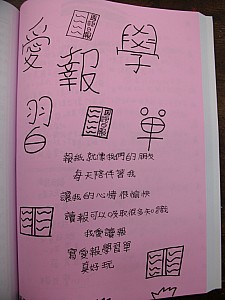 愛報學
習單
報紙就像我們的朋友
每天陪伴著我
讓我的心情很愉快
讀報可以吸取很多知識
我愛讀報
寫愛報學習單
真好玩